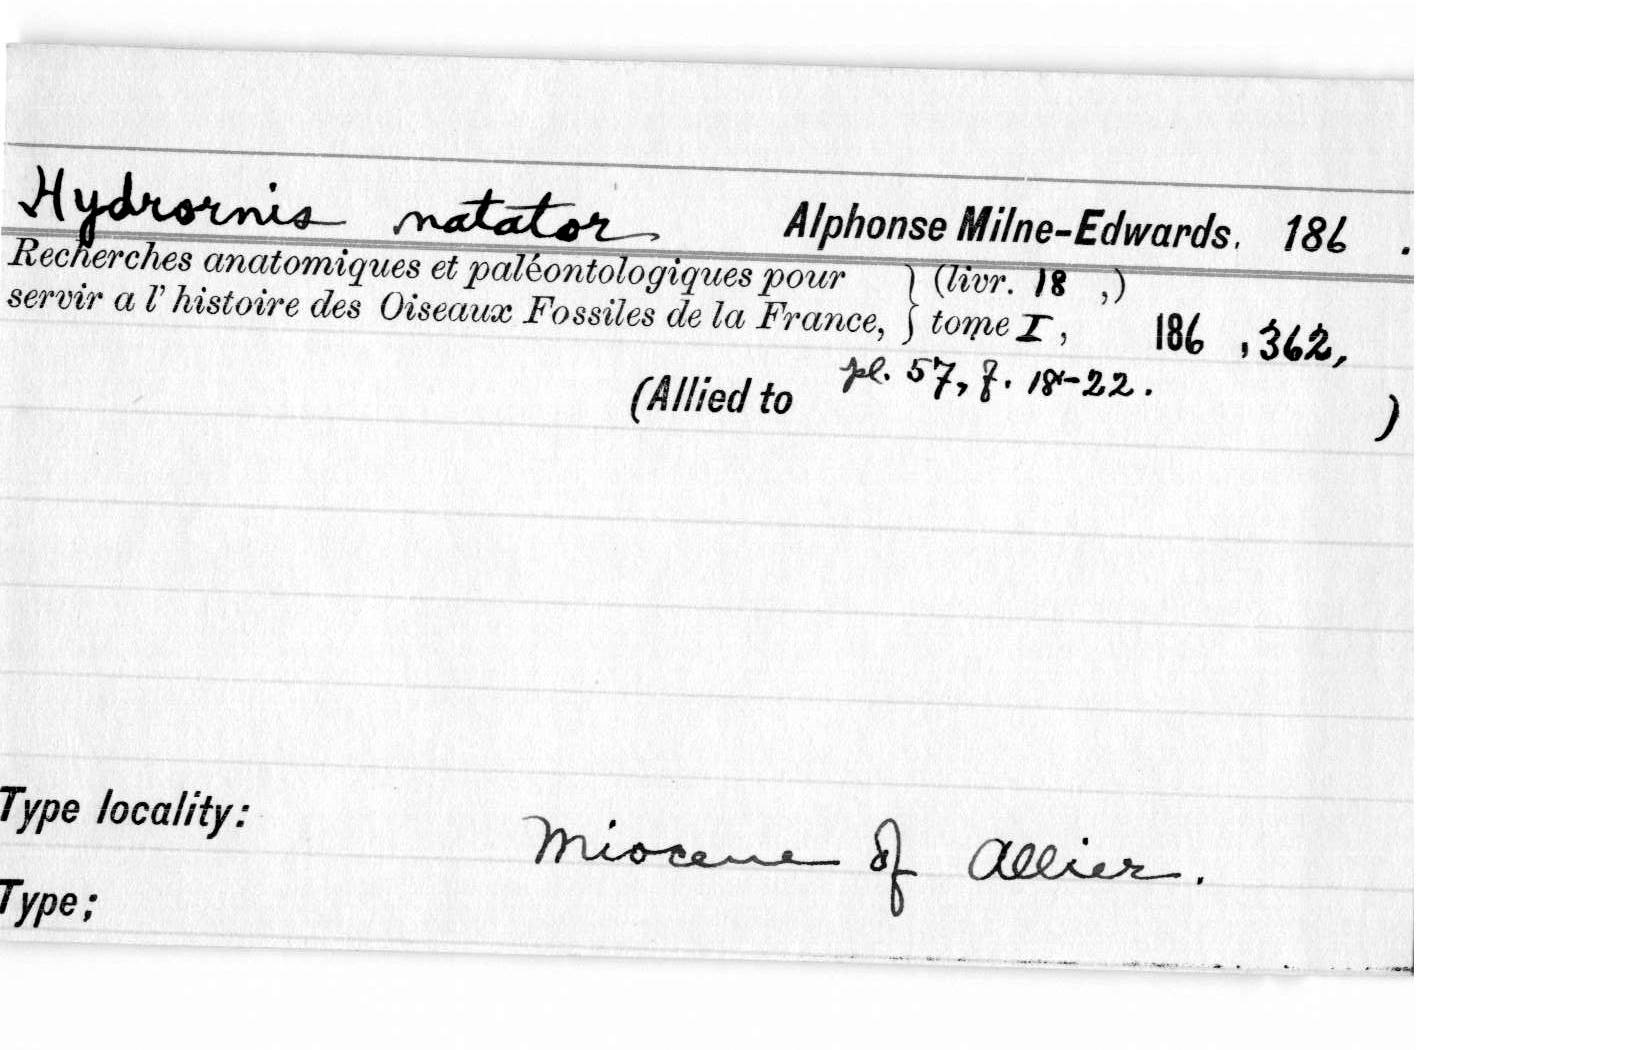 Hydrornis natator Alphonse Milne-Edwards. 186 .
Recherches anatomiques et paléontologiques pour } (livr. 18 ,)
servir a l' histoire des Oiseaux Fossiles de la France, } tome I, 186 , 362,
pl. 57, f. 18-22.
(Allied to )
Type locality: Miocene of Allier.
Type;